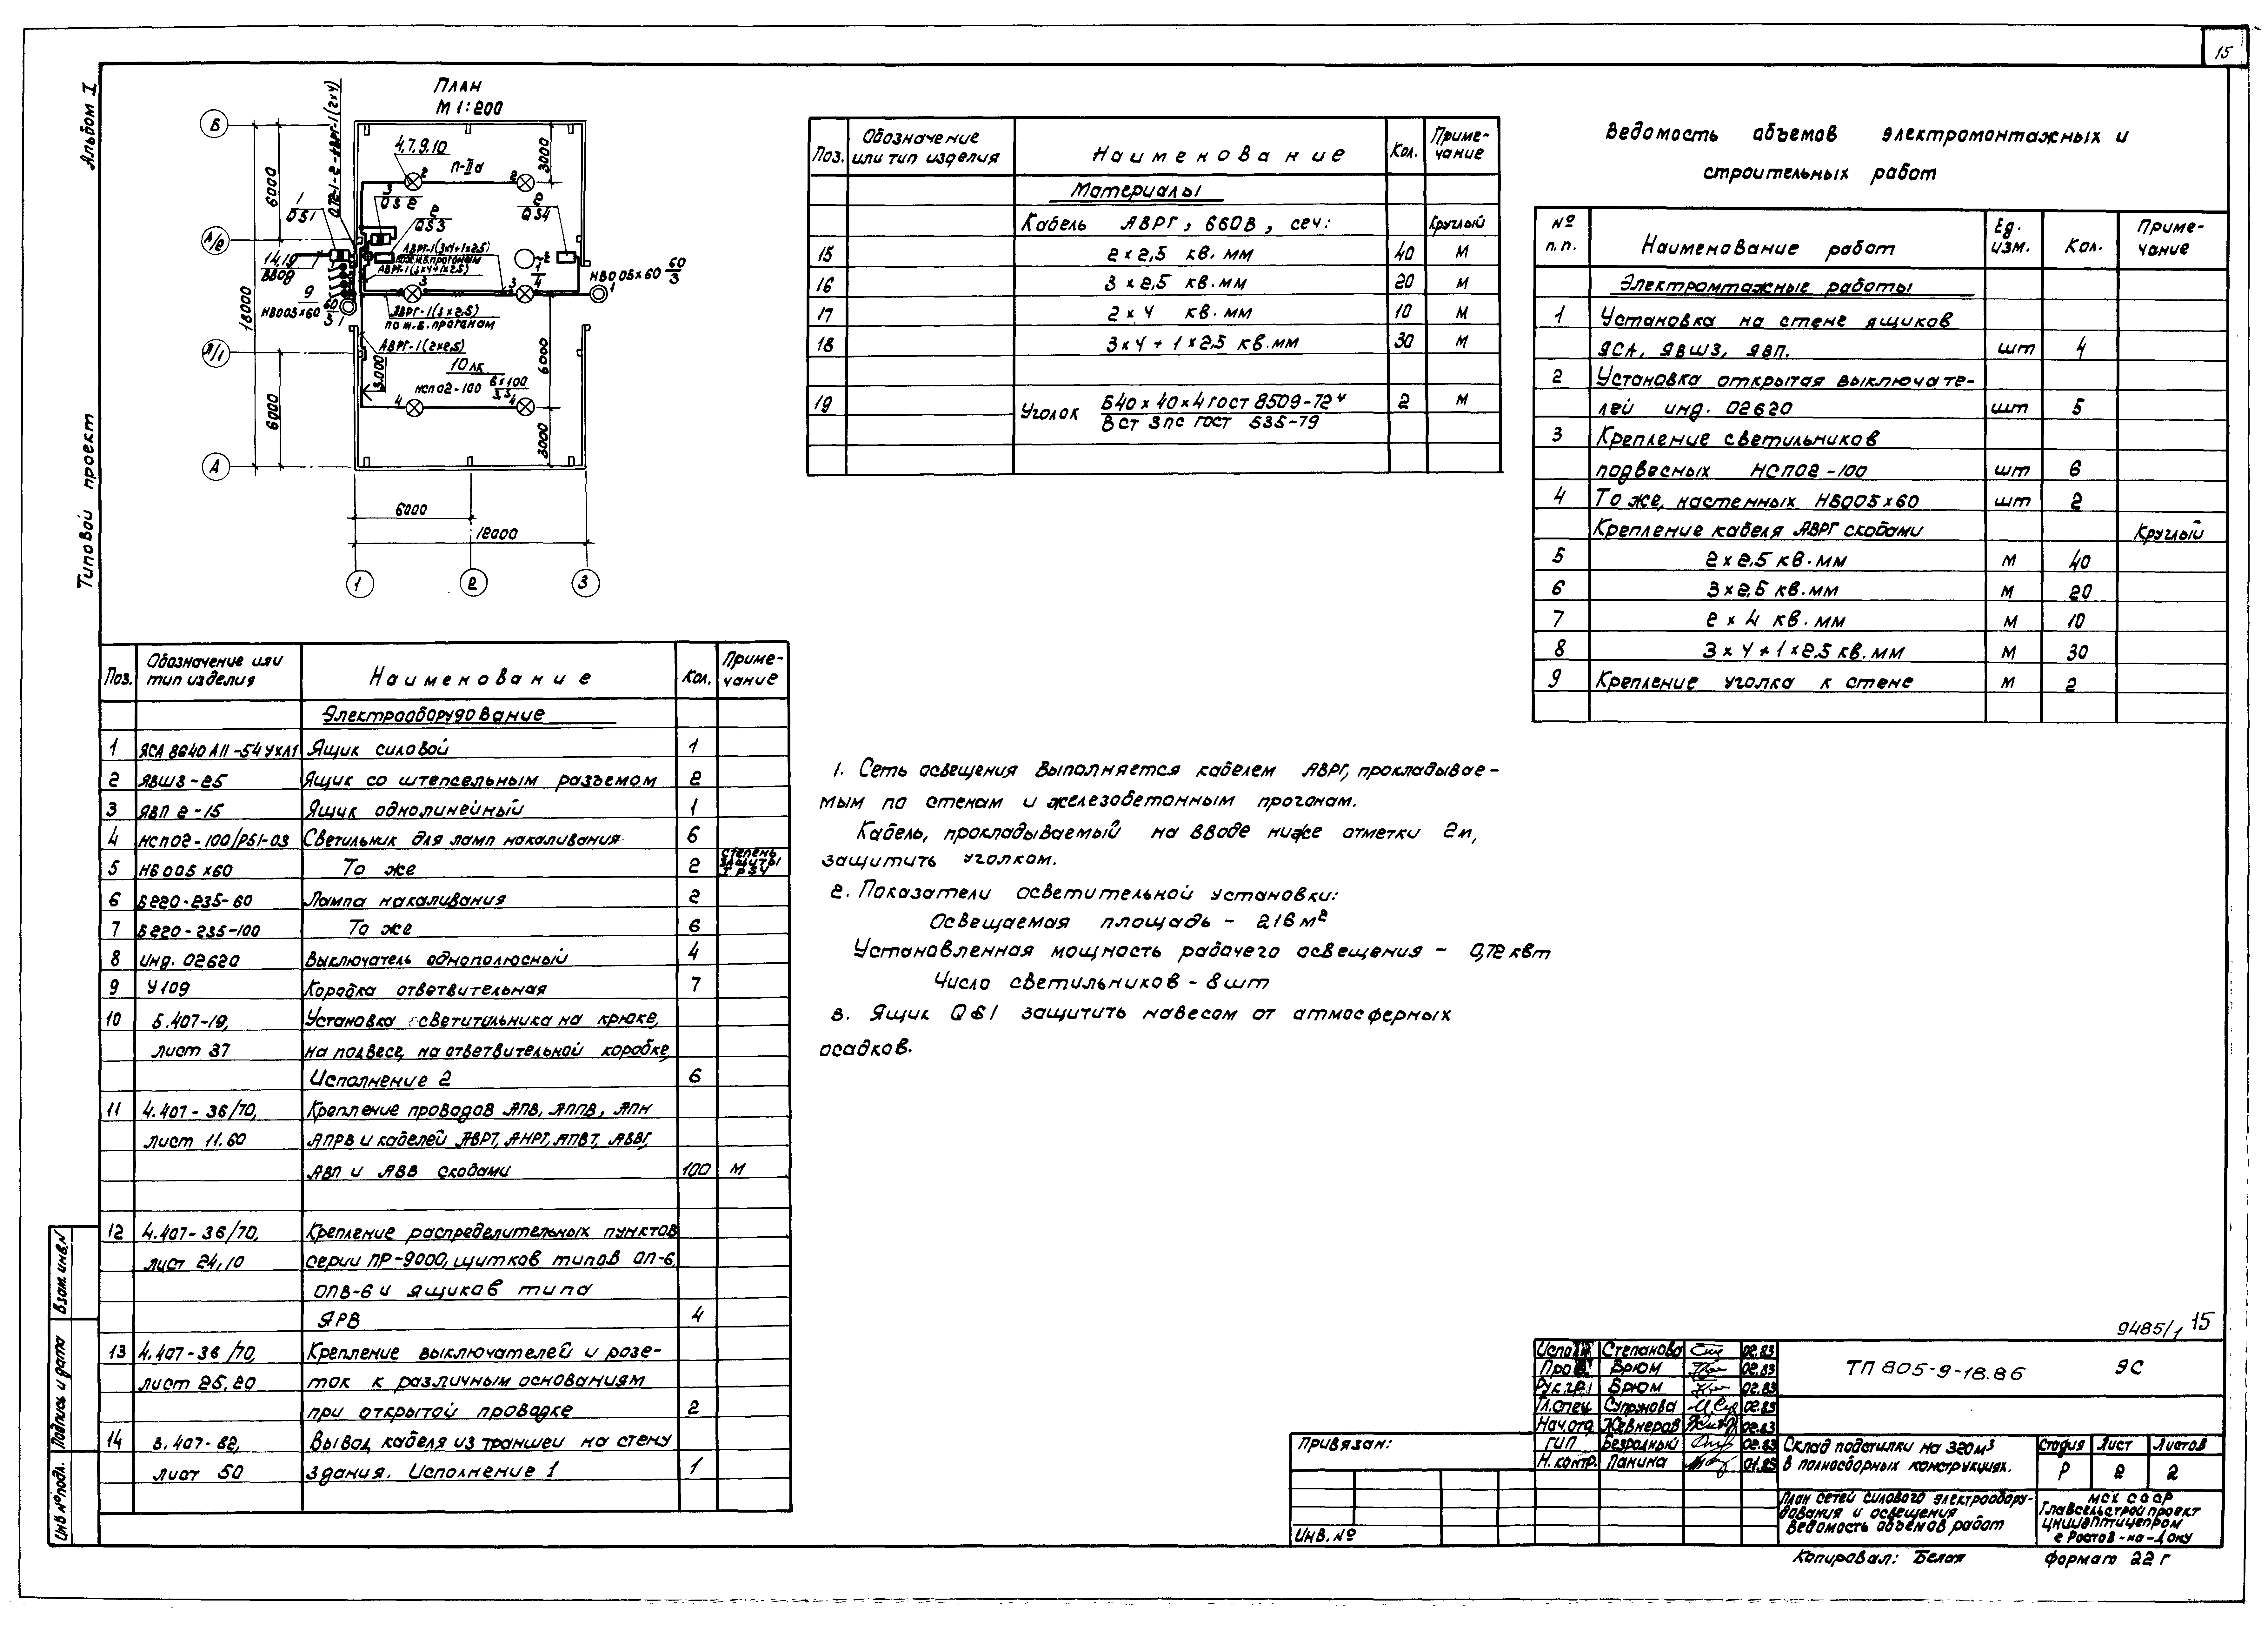 15
Альбом I
Типовой проект
План
М 1:200
Б
А/2
А/1
А
1
2
3
6000
18000
6000
3000
6000
3000
3.000
6000
12000
4,7,9,10
П-IIа
1
QS1
3
QS2
2
QS3
2
QS4
14,19
Ввод
АВРГ-1(3х4+1х2,5)
АВРГ-1(3х4+1х2,5)
НВ005х60 60/3
НВ005х60 60/3
АВРГ-1(3х2,5)
по ж.б. прогонам
АВРГ-1(2х2,5)
10 лк
НСП02-100 6х100/3,5
Поз. Обозначение или тип изделия Наименование Кол. Примечание
Электрооборудование
1 ЯСА 8640 АII-54 УХЛ1 Ящик силовой 1
2 ЯВШ3-25 Ящик со штепсельным разъемом 2
3 ЯВП 2-15 Ящик однолинейный 1
4 НСП02-100/Р51-03 Светильник для ламп накаливания 6
5 НБ005х60 То же 2 степень защиты IP54
6 Б220-235-60 Лампа накаливания 2
7 Б220-235-100 То же 6
8 Инд. 02620 Выключатель однополюсный 4
9 У109 Коробка ответвительная 7
10 5.407-19, Установка осветитильника на крюке,
лист 37 на подвесе, на ответвительной коробке,
Исполнение 2 6
11 4.407-36/70, Крепление проводов АПВ, АППВ, АПН
лист 11.60 АПРВ и кабелей АВРГ, АНРГ, АПВТ, АВВГ,
АВП и АВВ скобами 100 м
12 4.407-36/70, Крепление распределительных пунктов
лист 24,10 серии ПР-9000, щитков типов ОП-6,
ОПВ-6 и ящиков типа
ЯРВ 4
13 4.407-36/70, Крепление выключателей и розе-
лист 25,20 ток к различным основаниям
при открытой проводке 2
14 3.407-82, Вывод кабеля из траншеи на стену
лист 50 здания. Исполнение 1 1
Поз. Обозначение или тип изделия Наименование Кол. Примечание
Материалы
Кабель АВРГ, 660В, сеч: Круглый
15 2х2,5 кв.мм 40 м
16 3х2,5 кв.мм 20 м
17 2х4 кв.мм 10 м
18 3х4+1х2,5 кв.мм 30 м
19 Уголок Б40х40х4 ГОСТ 8509-72 2 м
В Ст 3пс ГОСТ 535-79
Ведомость объемов электромонтажных и
строительных работ
№ п.п. Наименование работ Ед. изм. Кол. Примечание
Электромтажные работы
1 Установка на стене ящиков
ЯСА, ЯВШ3, ЯВП. шт 4
2 Установка открытая выключате-
лей инд. 02620 шт 5
3 Крепление светильников
подвесных НСП02-100 шт 6
4 То же, настенных НБ005х60 шт 2
Крепление кабеля АВРГ скобами Круглый
5 2х2,5 кв.мм м 40
6 3х2,5 кв.мм м 20
7 2х4 кв.мм м 10
8 3х4+1х2,5 кв.мм м 30
9 Крепление уголка к стене м 2
1. Сеть освещения выполняется кабелем АВРГ, прокладывае-
мым по стенам и железобетонным прогонам.
Кабель, прокладываемый на вводе ниже отметки 2м,
защитить уголком.
2. Показатели осветительной установки:
Освещаемая площадь - 216м²
Установленная мощность рабочего освещения - 0,72 квт
Число светильников - 8шт
3. Ящик QS1 защитить навесом от атмосферных
осадков.
9485/1 15
Степанова 02.83
Брюм 02.83
Рук.гр. Брюм 02.83
Гл.спец. Супрунова 02.83
Нач.отд. Жевнеров 02.83
ГИП Безродный 02.83
Н.контр. Панина
ТП 805-9-18.86 ЭС
Склад подстилки на 320м³
в полносборных конструкциях.
Стадия Лист Листов
Р 2 2
План сетей силового электрообору-
дования и освещения
Ведомость объемов работ
МСХ СССР
Главсельстройпроект
ЦНИИЭПптицепром
г. Ростов-на-Дону
Привязан:
Инв. №
Копировал: Белая Формат 22 г
Взам. инв. №
Подпись и дата
Инв. № подл.